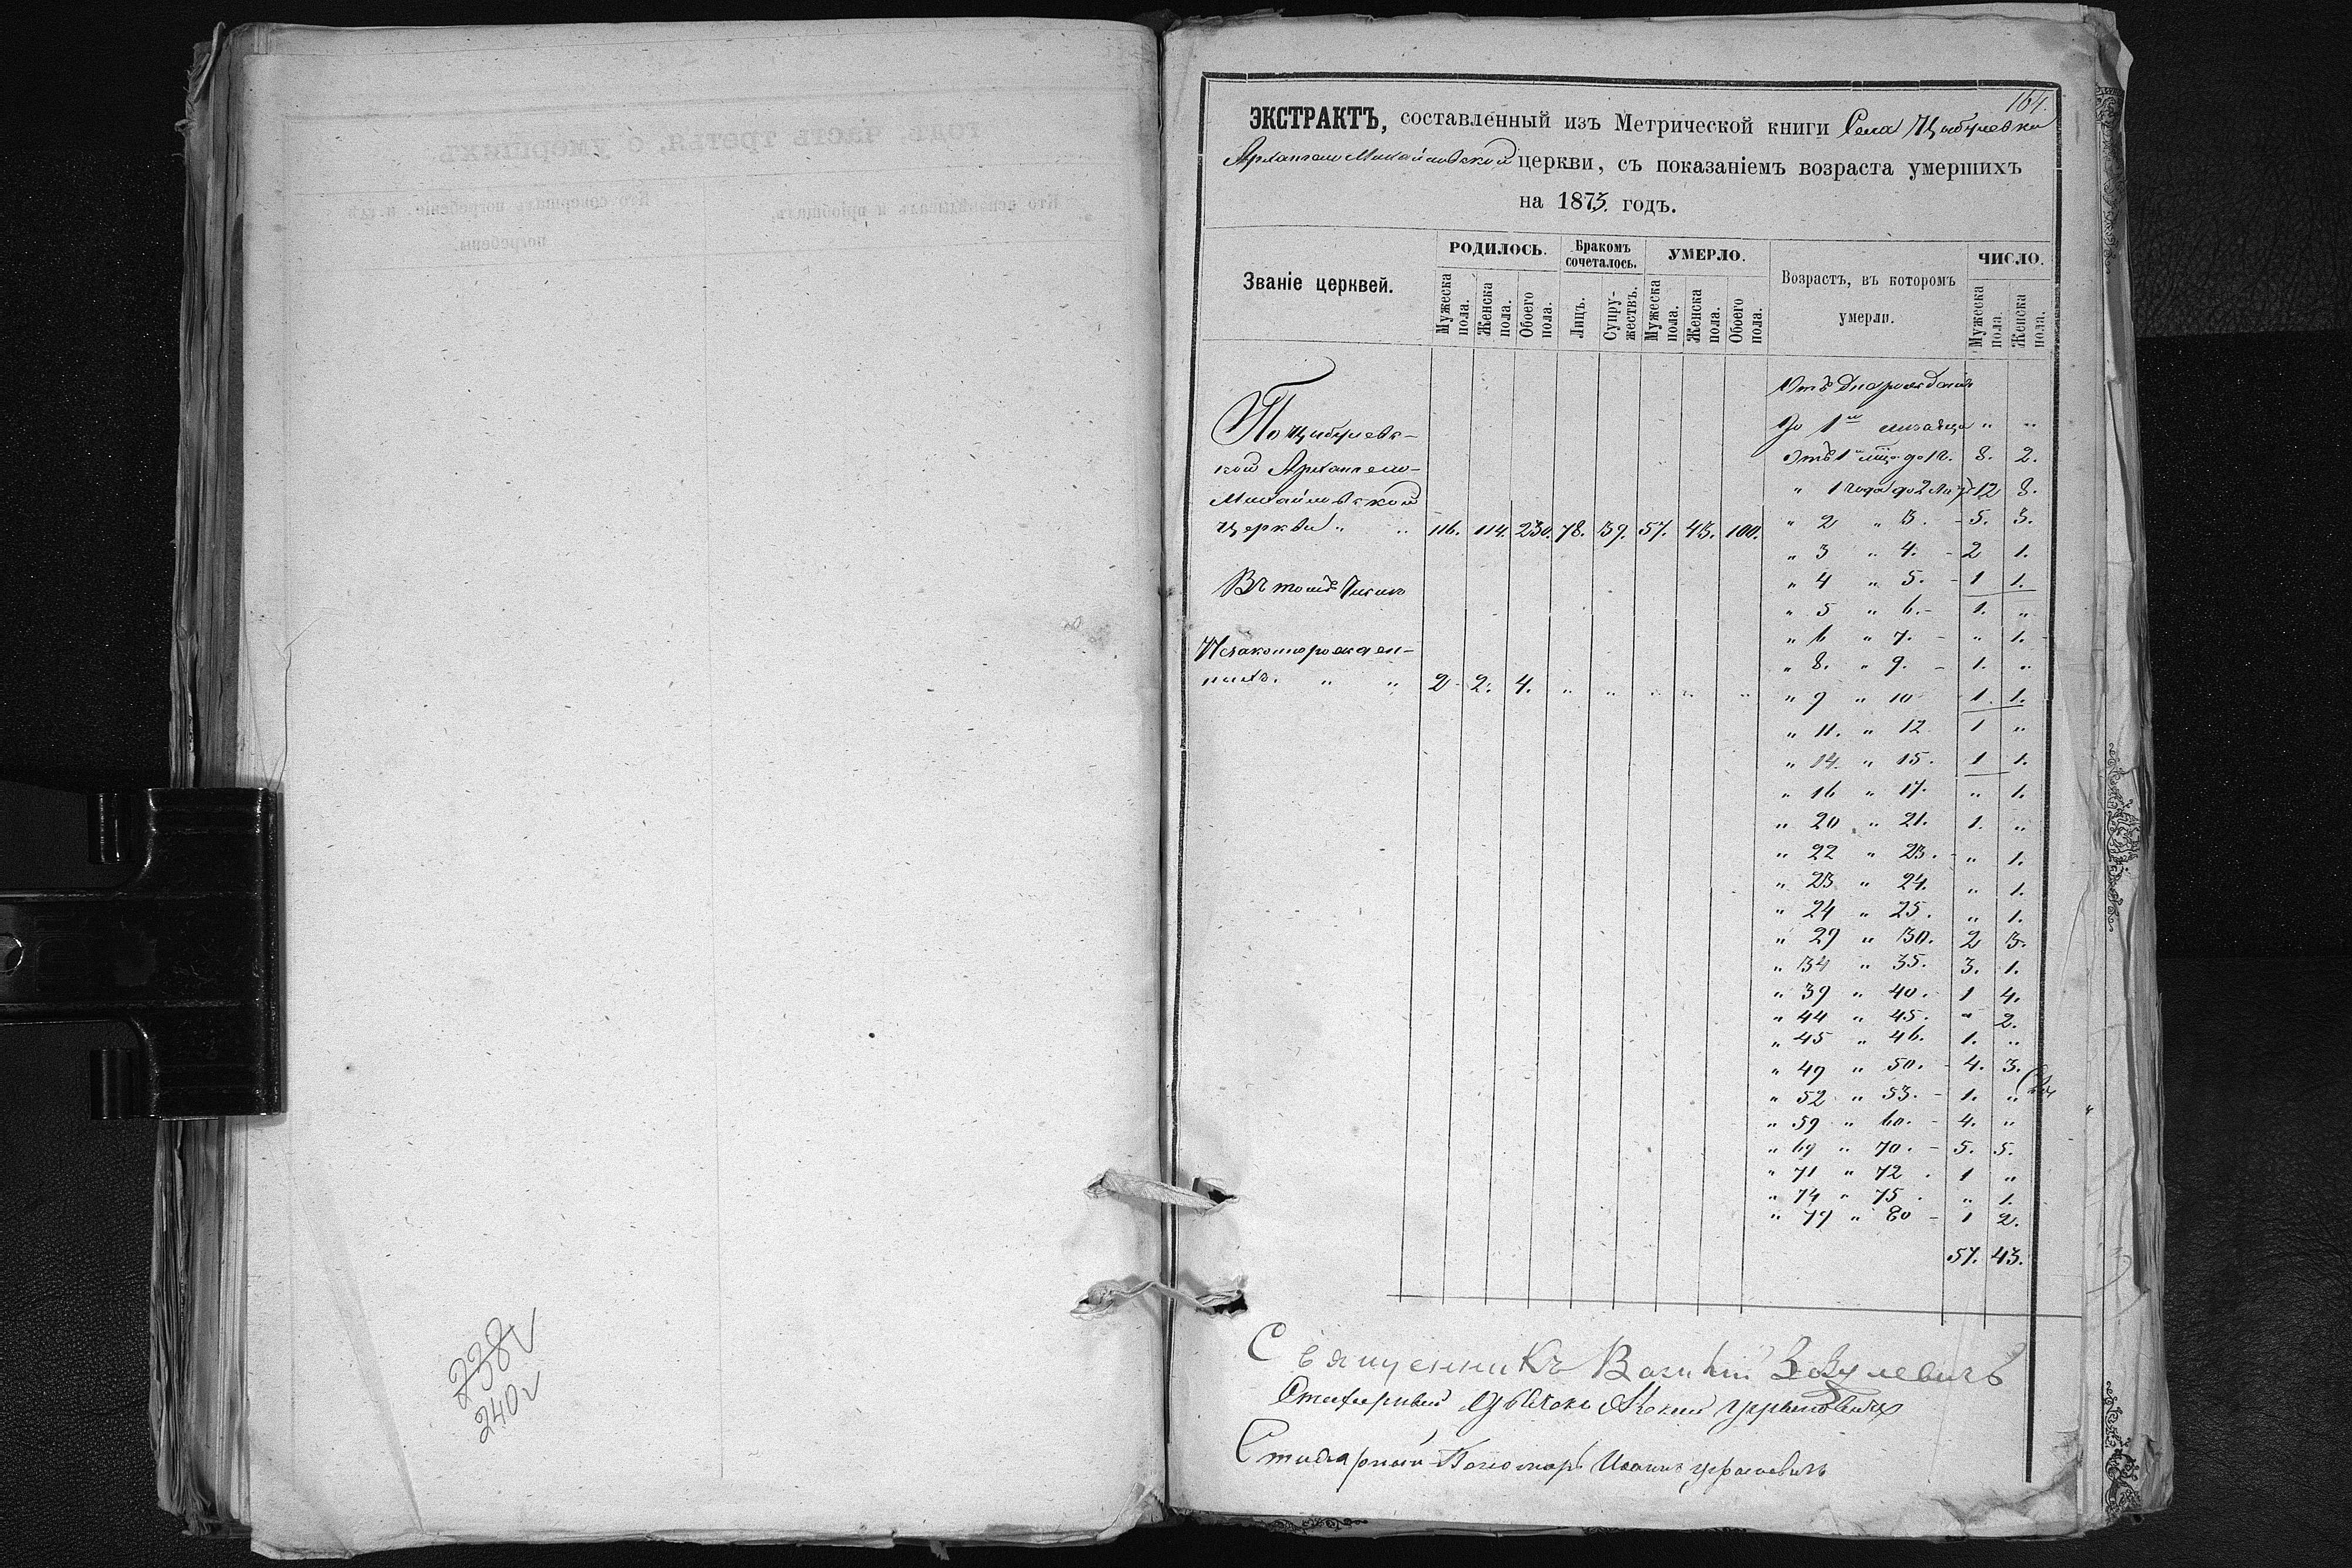 238
240
164.
ЭКСТРАКТЪ, составленный изъ Метрической книги Села Цибулевки
Архангело Михайловской церкви, съ показаніемъ возраста умершихъ
на 1873. годъ.
Званіе церквей.
РОДИЛОСЬ.
Мужеска пола.
Женска пола.
Обоего пола.
Бракомъ сочеталось.
Лицъ.
Супружествъ.
УМЕРЛО.
Мужеска пола.
Женска пола.
Обоего пола.
Возрастъ, въ которомъ
умерли.
ЧИСЛО.
Мужеска пола.
Женска пола.
По Цибулевс-
кой Архангело-
Михайловской
Церкви " " 116. 114. 230. 78. 39. 57. 43. 100.
Въ томъ числѣ
Незаконнорожден-
ныхъ. " " 2 2. 4. " " " " "
Отъ дня рожденія
До 1го мѣсяца " "
Отъ 1 до 1 г. 8. 2.
" 1 года до 2 12 8.
" 2 " 3. - 5. 3.
" 3 " 4. - 2 1.
" 4 " 5. - 1 1.
" 5 " 6. - 1. "
" 6 " 7. - " 1.
" 8. " 9. - 1. "
" 9 " 10 1. 1.
" 11. " 12 1 "
" 14. " 15. 1 1.
" 16 " 17. " 1.
" 20 " 21. 1. "
" 22 " 23. - " 1.
" 23 " 24. " 1.
" 24 " 25. " 1.
" 29 " 30. 2 3.
" 34 " 35. 3. 1.
" 39 " 40. - 1 4.
" 44 " 45. " 2.
" 45 " 46. 1. "
" 49 " 50. - 4. 3.
" 52 " 53. - 1. "
" 59 " 60. - 4. "
" 69 " 70. - 5. 5.
" 71 " 72 . 1 "
" 74 " 75 . " 1.
" 79 " 80 - 1 2.
57. 43.
Священникъ Василій
Стихарный Пономарь Иоаннъ